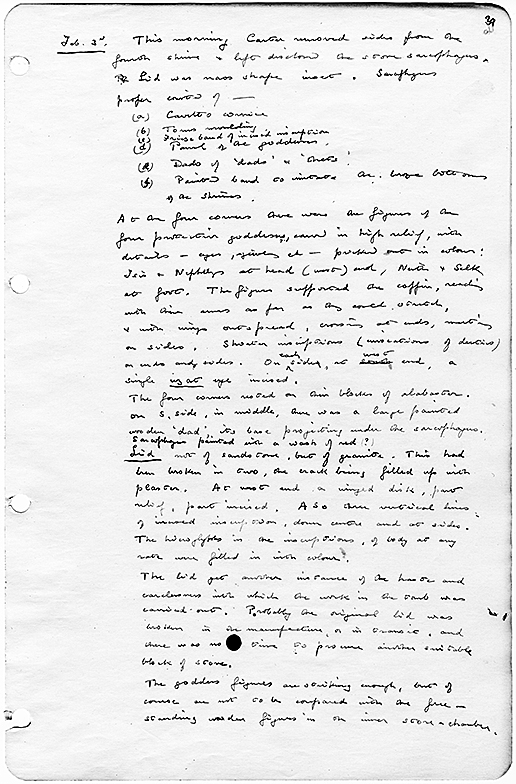 39
Feb. 3rd. This morning Carter removed sides from the
fourth shrine & left disclosed the stone sarcophagus.
Lid was mass shape incet. Sarcophagus
proper consisted of —
(a) Cavetto cornice
(b) Torus moulding
(c) Frieze band of incised inscription
(d) Panel of the goddesses.
(e) Dado of 'dads' & 'thets'.
(f) Painted band to imitate the bronze bottoms
of the shrines.
At the four corners there were the figures of the
four protective goddesses, carved in high relief, with
details — eyes, jewels etc — picked out in colour:
Isis & Nephthys at head (west) end, Neith & Selk
at foot. The figures supported the coffin, reaching
with their arms as far as they could stretch,
& with wings outspread, crossing at ends, meeting
on sides. Shorter inscriptions (invocations of deities)
on ends and sides. On each side, at west end, a
single uzat eye incised.
The four corners rested on thin blocks of alabaster.
On S. side, in middle, there was a large painted
wooden 'dad', its base projecting under the sarcophagus.
Sarcophagus painted with a wash of red (?)
Lid not of sandstone, but of granite. This had
been broken in two, the crack being filled up with
plaster. At west end a winged disk, part
relief, part incised. Also three vertical lines
of incised inscription, down centre and at sides.
The hieroglyphs in the inscriptions, of body at any
rate were filled in with colour.
The lid yet another instance of the haste and
carelessness with which the work in the tomb was
carried out. Probably the original lid was
broken in the manufacture, or in transit, and
there was no time to procure another suitable
block of stone.
The goddess figures are striking enough, but of
course are not to be compared with the free-
standing wooden figures in the inner store-chamber.